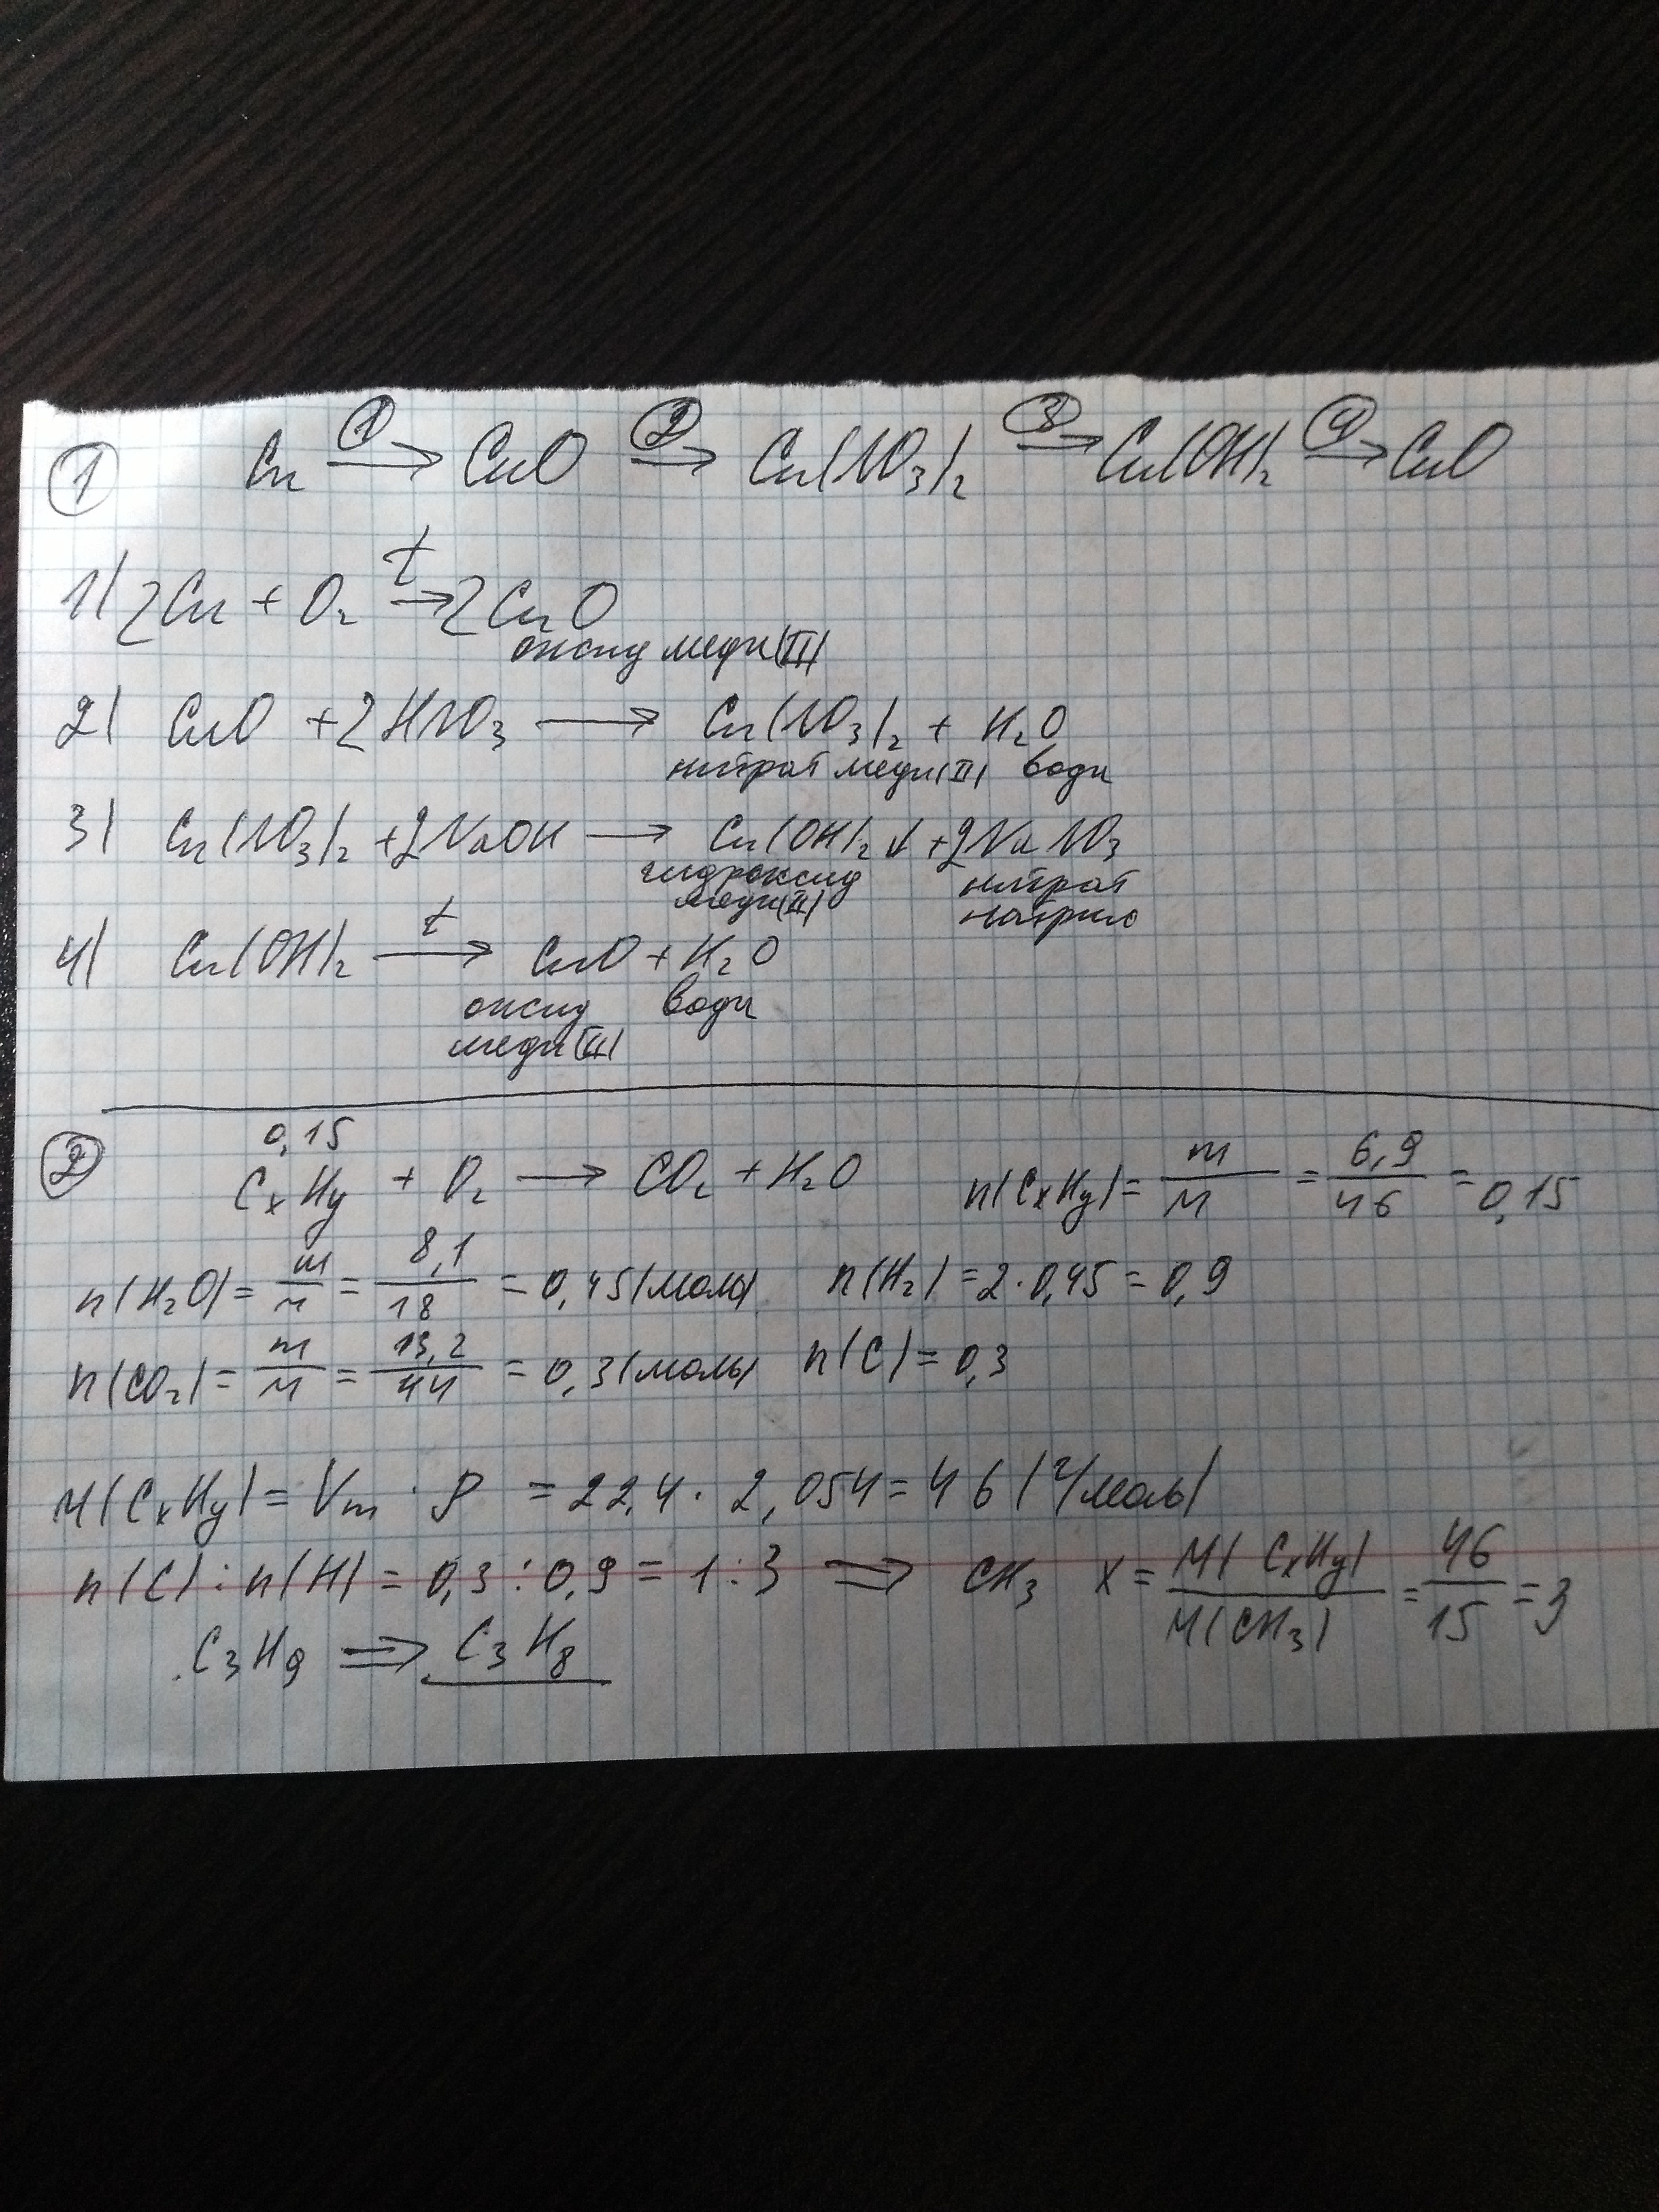 ① Cu ①→ CuO ②→ Cu(NO₃)₂ ③→ Cu(OH)₂ ④→ CuO
1) 2Cu + O₂ t→ 2CuO
оксид меди(II)
2) CuO + 2HNO₃ → Cu(NO₃)₂ + H₂O
нитрат меди(II) воды
3) Cu(NO₃)₂ + 2NaOH → Cu(OH)₂↓ + 2NaNO₃
гидроксид меди(II) нитрат натрия
4) Cu(OH)₂ t→ CuO + H₂O
оксид меди(II) воды
② 0,15
CxHy + O₂ → CO₂ + H₂O n(CxHy) = m/M = 6,9/46 = 0,15
n(H₂O) = m/M = 8,1/18 = 0,45(моль) n(H₂) = 2·0,45 = 0,9
n(CO₂) = m/M = 13,2/44 = 0,3(моль) n(C) = 0,3
M(CxHy) = Vm · ρ = 22,4 · 2,054 = 46 (г/моль)
n(C) : n(H) = 0,3 : 0,9 = 1 : 3 ⇒ CH₃ x = M(CxHy)/M(CH₃) = 46/15 = 3
C₃H₉ ⇒ C₃H₈